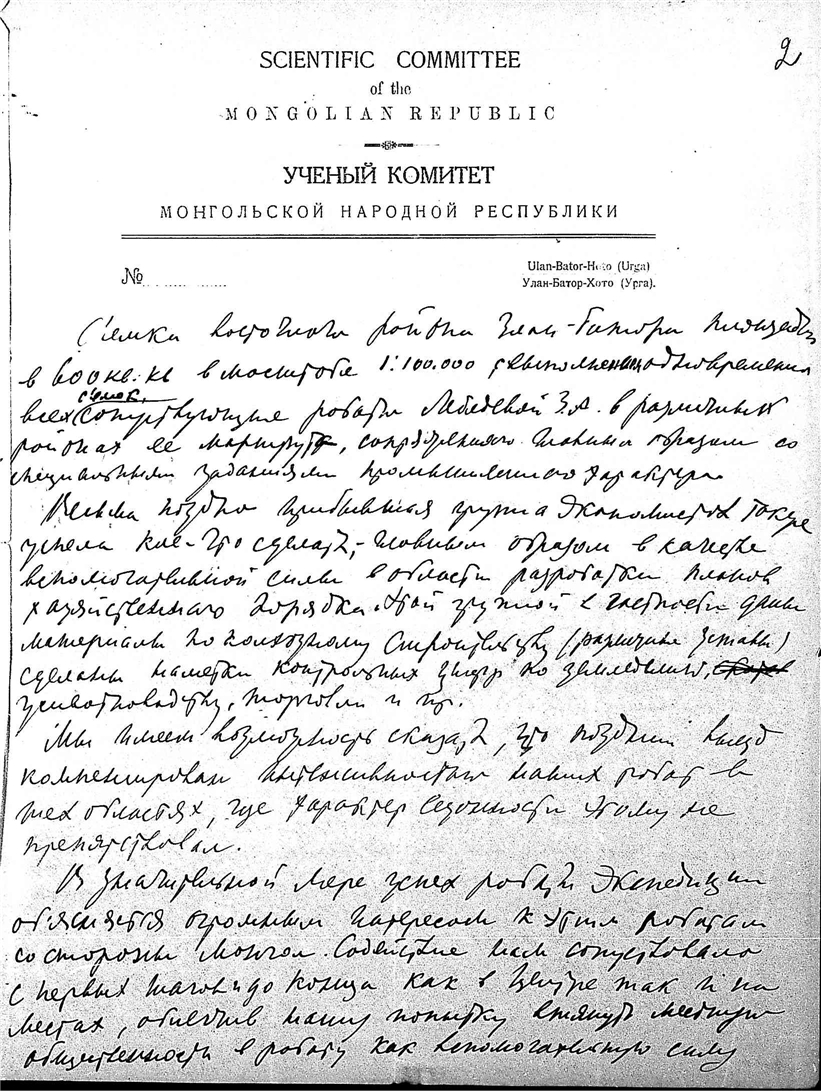 2
SCIENTIFIC COMMITTEE
of the
MONGOLIAN REPUBLIC
УЧЕНЫЙ КОМИТЕТ
МОНГОЛЬСКОЙ НАРОДНОЙ РЕСПУБЛИКИ
№
Ulan-Bator-Hoto (Urga)
Улан-Батор-Хото (Урга).
Съемка восточного района Улан-Батора площадью
в 600 кв. кл в масштабе 1:100.000 с выполнением одновременно
съемок
всех сопутствующие работы Лебедевой З.А. в различных
районах ее маршрута, сопряженного главным образом со
специальными заданиями промышленного характера.
Весьма поздно прибывшая группа Экономистов также
успела кое-что сделать, главным образом в качестве
вспомогательной силы в области разработки планов
хозяйственного порядка. Этой группой в частности даны
материалы по колхозному строительству (различные уставы)
сделаны наметки контрольных цифр по земледелию,
животноводству, торговли и пр.
Мы имеем возможность сказать, что поздний выезд
компенсирован интенсивностью наших работ в
тех областях, где характер сезонности этому не
препятствовал.
В значительной мере успех работ Экспедиции
объясняется огромным интересом к этим работам
со стороны монгол. Содействие нам сопутствовало
с первых шагов и до конца как в Центре так и на
местах, облегчив нашу попытку втянуть местную
общественность в работу как вспомогательную силу